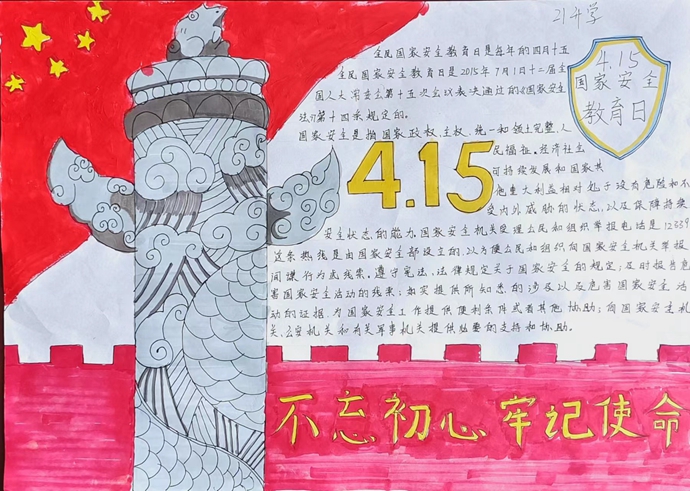 21升学
4.15
国家安全
教育日
全民国家安全教育日是每年的四月十五
全民国家安全教育日是2015年7月1日十二届全
国人大常委会第十五次会议表决通过的《国家安全
法》第十四条规定的。
国家安全是指国家政权、主权、统一和领土完整、人
民福祉、经济社会
可持续发展和国家其
他重大利益相对处于没有危险和不
受内外威胁的状态，以及保障持续
安全状态的能力。国家安全机关受理公民和组织举报电话是12339
这条热线是由国家安全部设立的，以方便公民和组织向国家安全机关举报
间谍行为或线索。遵守宪法、法律规定关于国家安全的规定；及时报告危
害国家安全活动的线索；如实提供所知悉的涉及以及危害国家安全活
动的证据、为国家安全工作提供便利条件或者其他协助；向国家安全机
关、公安机关和有关军事机关提供必要的支持和协助。
4.15
不忘初心 牢记使命